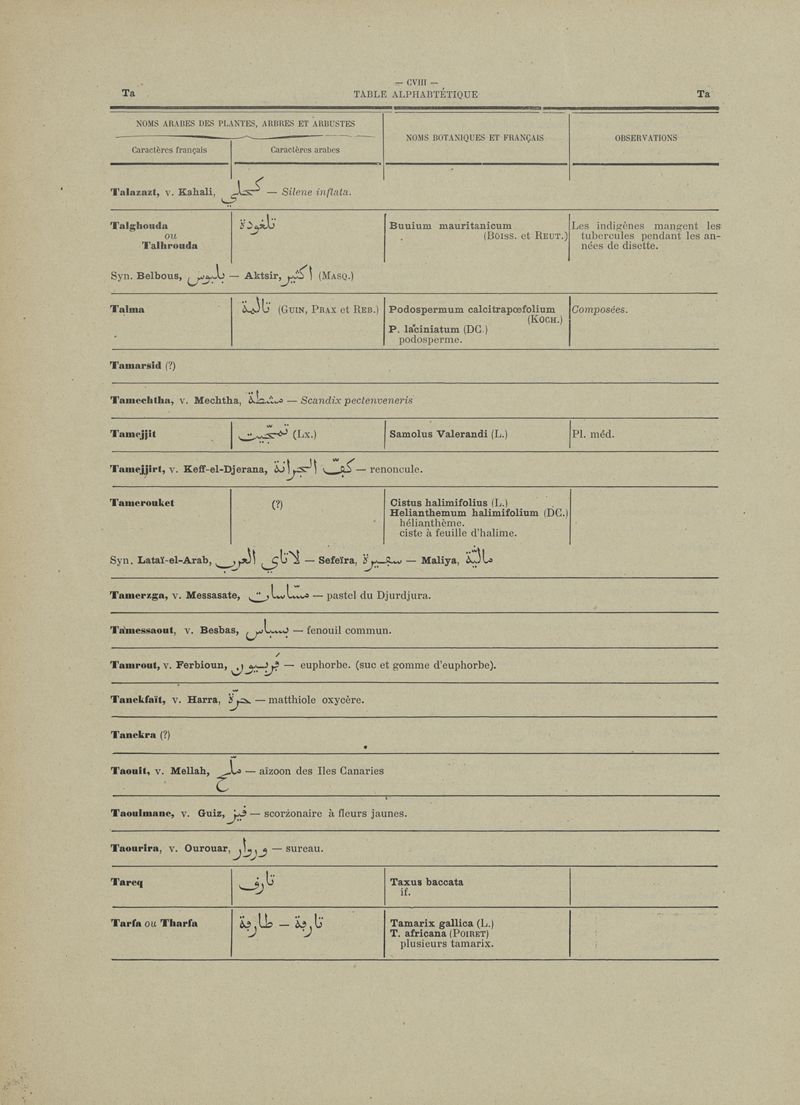 — CVIII —
Ta TABLE ALPHABTÉTIQUE Ta
NOMS ARABES DES PLANTES, ARBRES ET ARBUSTES
NOMS BOTANIQUES ET FRANÇAIS
OBSERVATIONS
Caractères français
Caractères arabes
Talazazt, v. Kahali, — Silene inflata.
Talghouda
ou
Talhrouda
Buuium mauritanicum
(Boiss. et Reut.)
Les indigènes mangent les
tubercules pendant les an-
nées de disette.
Syn. Belbous, — Aktsir, (Masq.)
Talma
(Guin, Prax et Reb.)
Podospermum calcitrapœfolium
(Koch.)
P. laciniatum (DC.)
podosperme.
Composées.
Tamarsid (?)
Tamechtha, v. Mechtha, — Scandix pectenveneris
Tamejjit
(Lx.)
Samolus Valerandi (L.)
Pl. méd.
Tamejjirt, v. Keff-el-Djerana, — renoncule.
Tamerouket
(?)
Cistus halimifolius (L.)
Helianthemum halimifolium (DC.)
hélianthème.
ciste à feuille d'halime.
Syn. Lataï-el-Arab, — Sefeïra, — Maliya,
Tamerzga, v. Messasate, — pastel du Djurdjura.
Tamessaout, v. Besbas, — fenouil commun.
Tamrout, v. Ferbioun, — euphorbe. (suc et gomme d'euphorbe).
Tanekfaït, v. Harra, — matthiole oxycère.
Tanekra (?)
Taouit, v. Mellah, — aizoon des Iles Canaries
Taoulmane, v. Guiz, — scorzonaire à fleurs jaunes.
Taourira, v. Ourouar, — sureau.
Tareq
Taxus baccata
if.
Tarfa ou Tharfa
Tamarix gallica (L.)
T. africana (Poiret)
plusieurs tamarix.